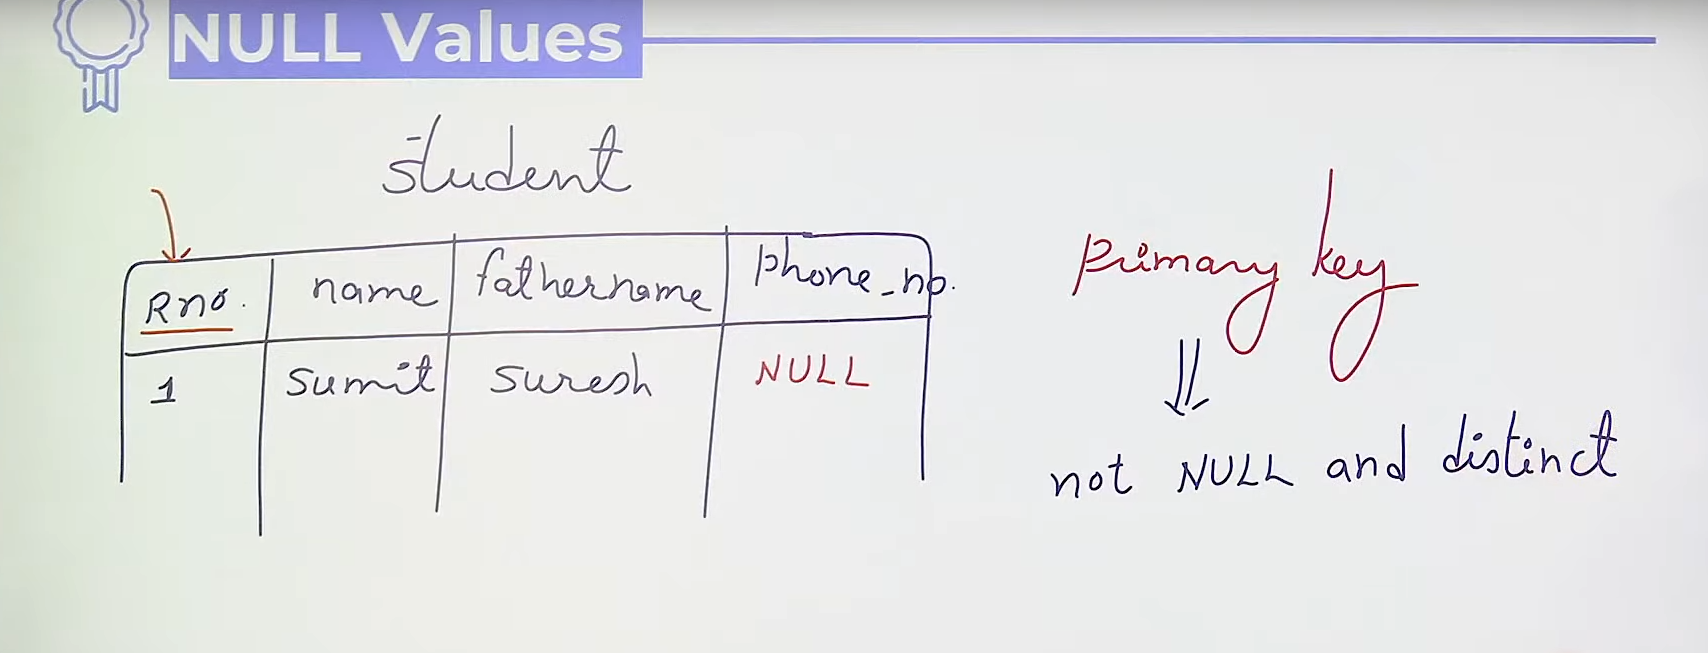 NULL Values
student
Rno. name fathername phone_no.
1 sumit suresh NULL
primary key
not NULL and distinct